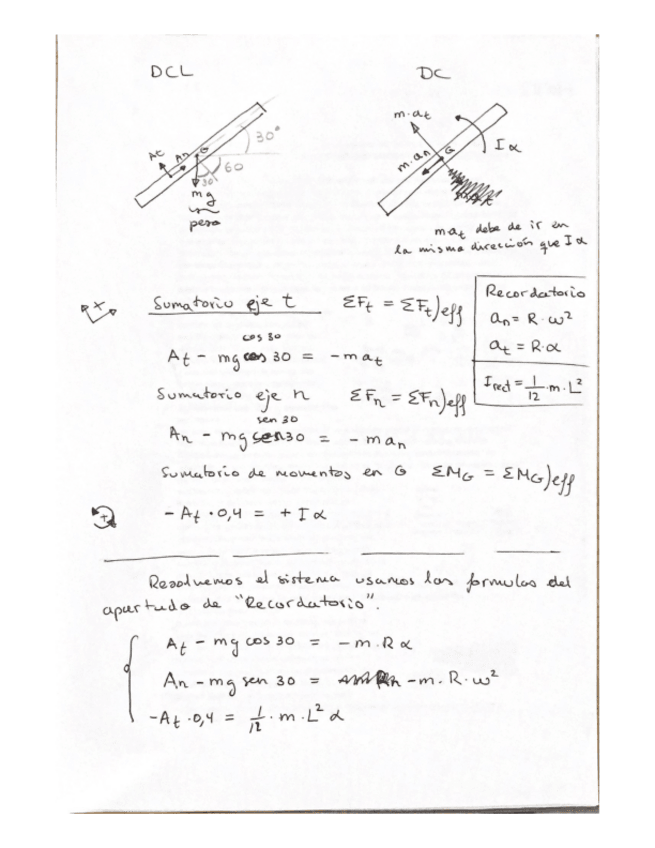 DCL
DC
30°
At
An
G
60
30
mg
peso
m·at
m·an
G
Iα
mat debe de ir en
la misma dirección que Iα
Sumatorio eje t ΣFt = ΣFt)eff
cos 30
At - mg cos 30 = -mat
Sumatorio eje n ΣFn = ΣFn)eff
sen 30
An - mg sen30 = - man
Sumatorio de momentos en G ΣMG = ΣMG)eff
- At · 0,4 = + Iα
Recordatorio
an = R·ω²
at = R·α
Ired = 1/12 · m·L²
Resolvemos el sistema usamos las formulas del
apartado de "Recordatorio".
At - mg cos 30 = -m.Rα
An - mg sen 30 = -m.R.ω²
-At ·0,4 = 1/12 · m.L²α